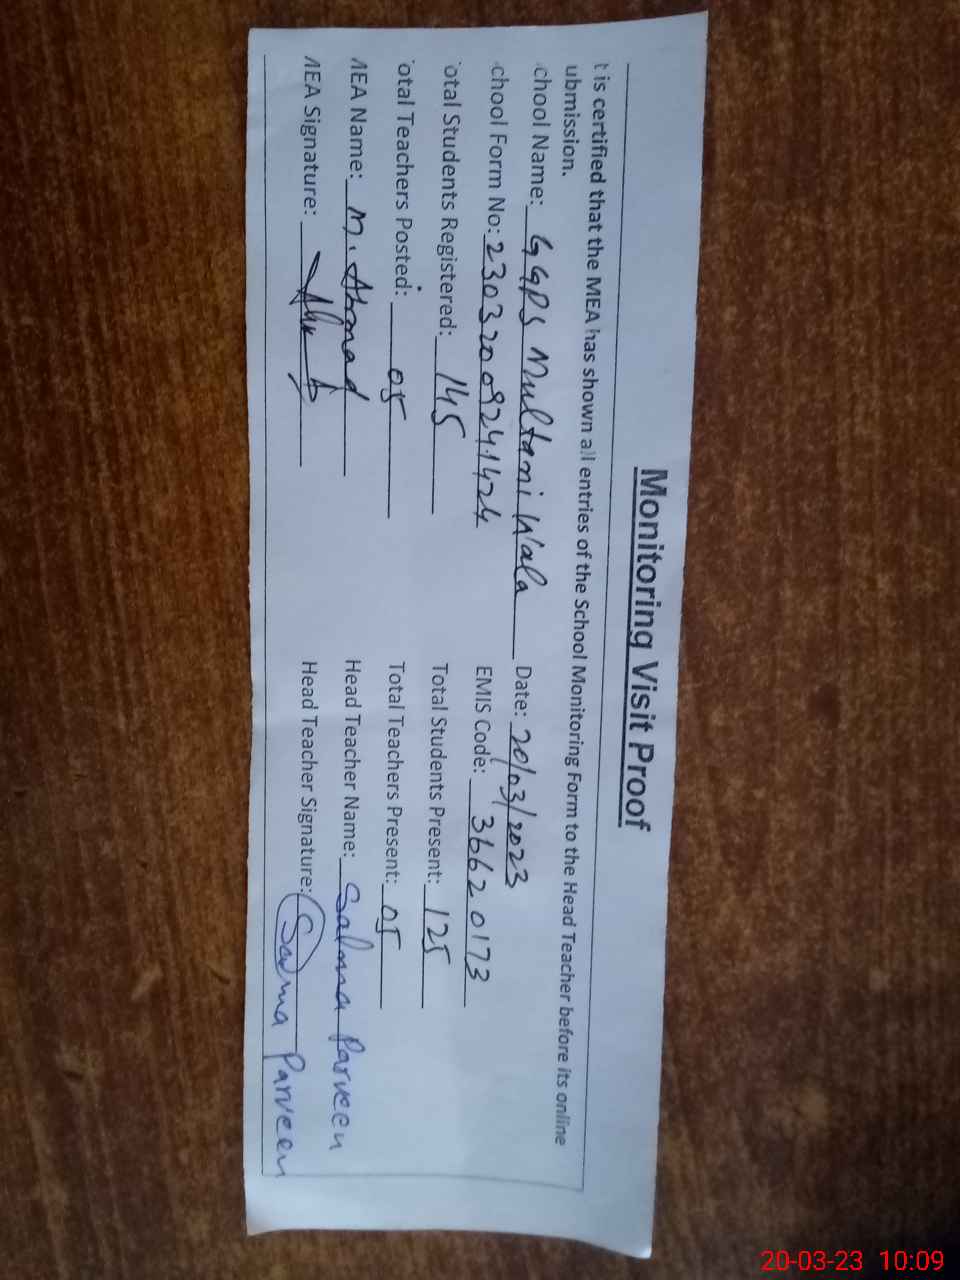 Monitoring Visit Proof
t is certified that the MEA has shown all entries of the School Monitoring Form to the Head Teacher before its online
ubmission.
chool Name: GGPS Multani Wala Date: 20/03/2023
chool Form No: 23032009241424 EMIS Code: 36620173
otal Students Registered: 145 Total Students Present: 125
otal Teachers Posted: 05 Total Teachers Present: 05
MEA Name: M. Ahmad Head Teacher Name: Salma Parveen
MEA Signature: Head Teacher Signature: Salma Parveen
20-03-23 10:09